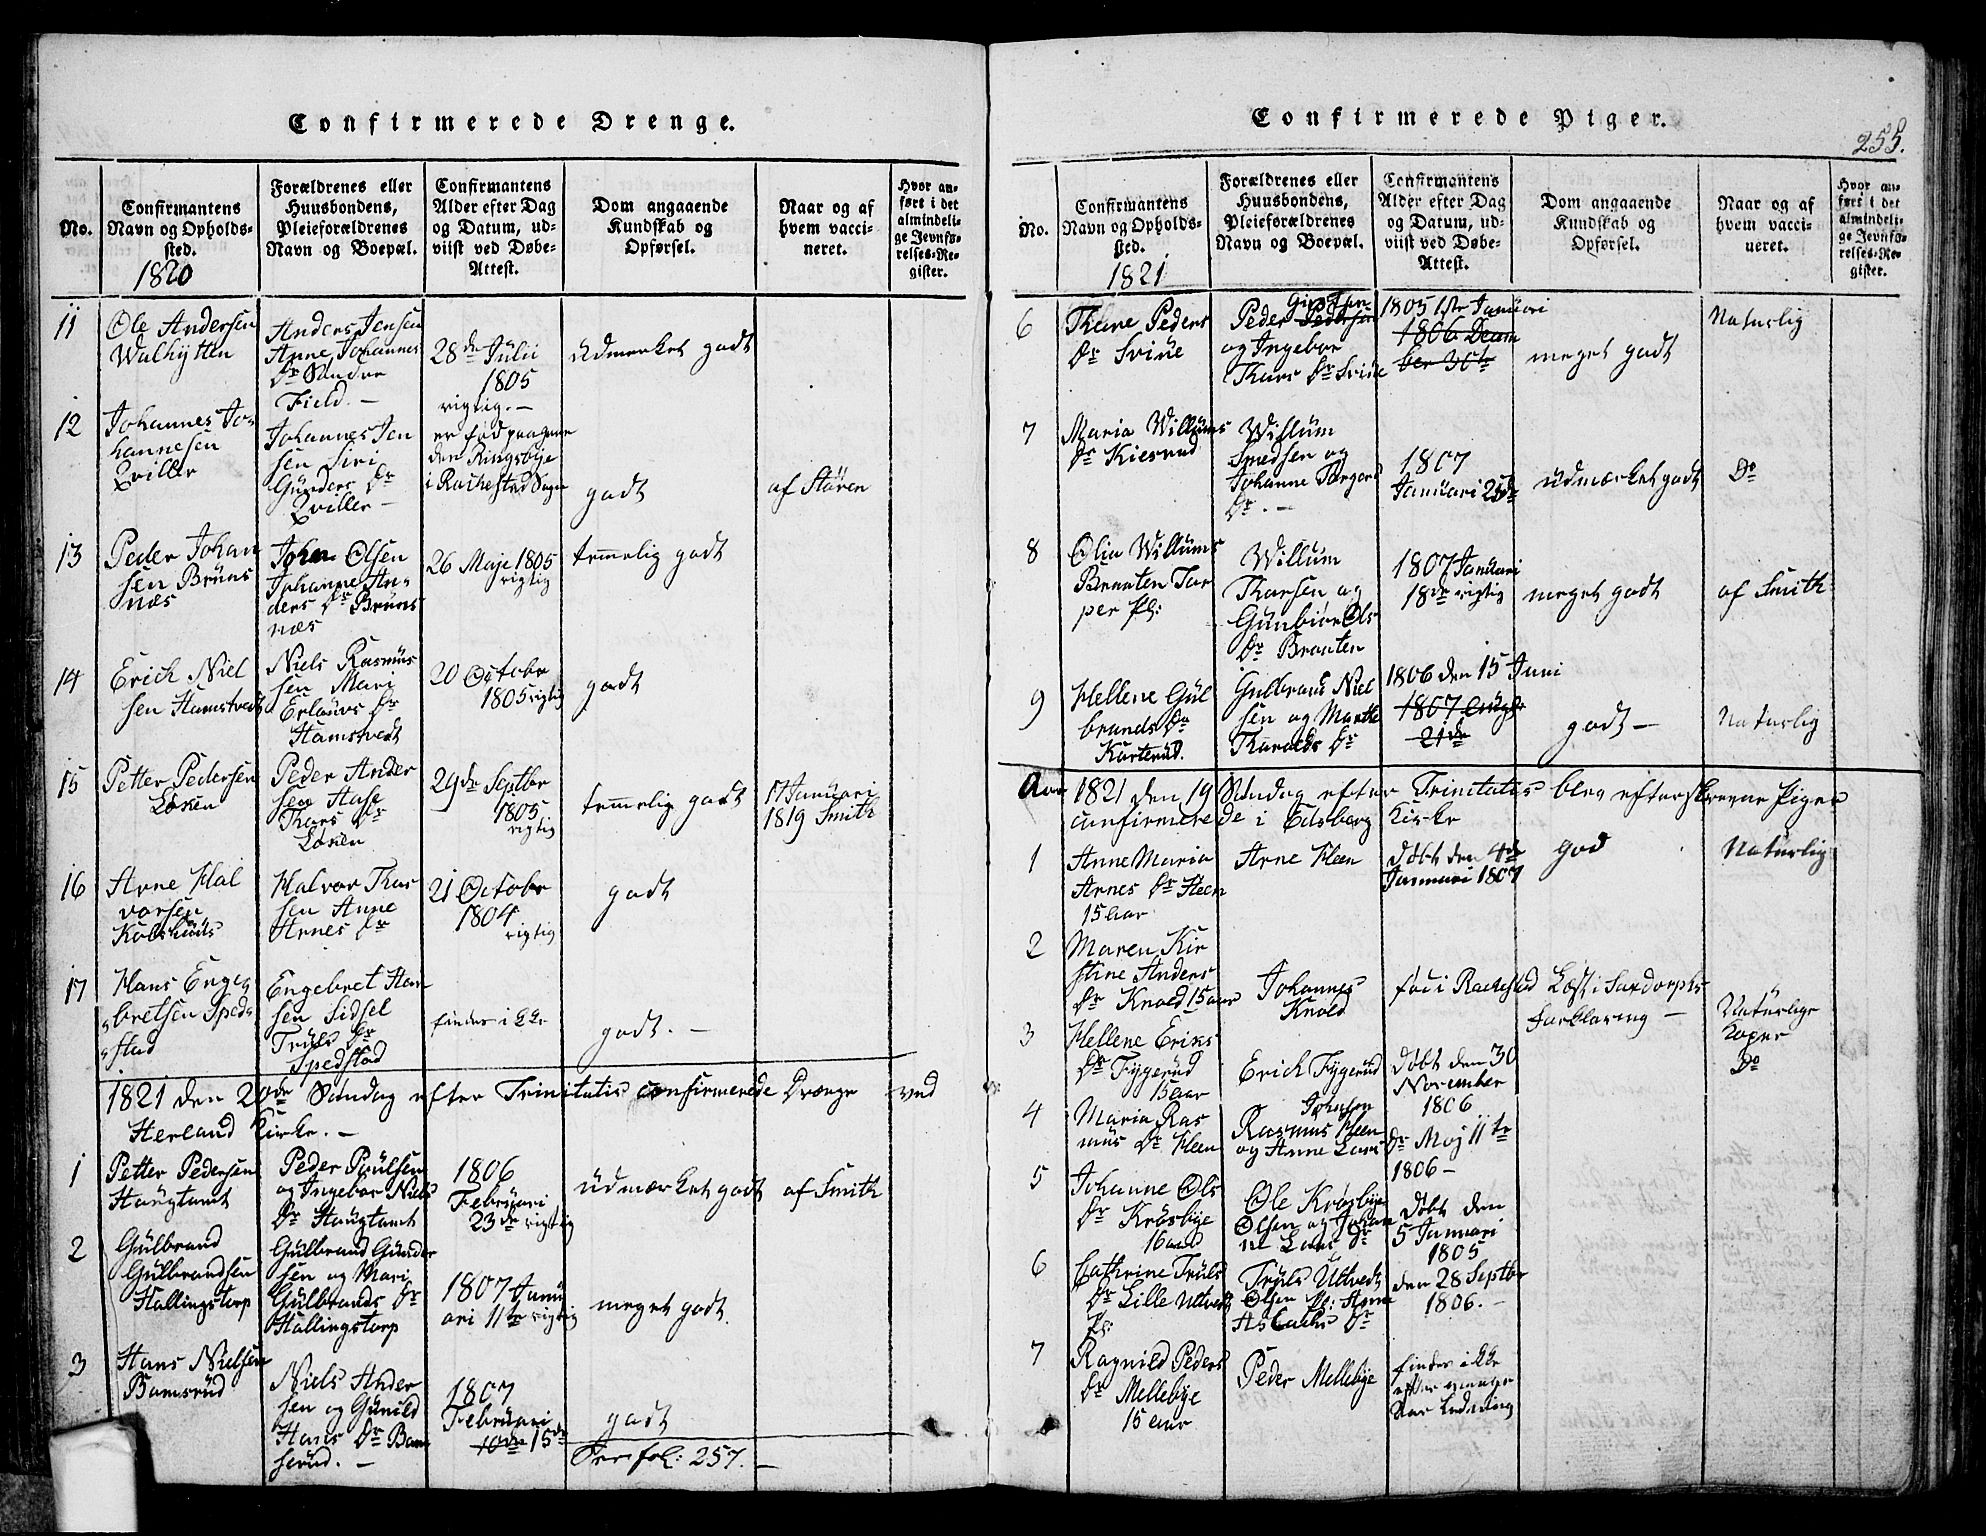 Confirmerede Drenge.
No.
Confirmantens
Navn og Opholds-
sted.
1820
Forældrenes eller
Huusbondens,
Pleieforældrenes
Navn og Boepæl.
Confirmantens
Alder efter Dag
og Datum, ud-
viist ved Døbe-
Attest.
Dom angaaende
Kundskab og
Opførsel.
Naar og af
hvem vacci-
neret.
Hvor an-
ført i det
almindeli-
ge Jevnfø-
relses-Re-
gister.
11
Ole Andersen
Walhytten
Anders Jensen
Anne Johannes
Dr Søndre
Field. —
28de Julii
1805
rigtig. —
udmerket godt
12
Johannes Jo-
hannesen
Qviller
Johannes Jen
sen Siri
Günders Dr
Qviller —
er fød paa
den Ringsbye
i Rackestad Sogn
godt
af Stören
13
Peder Johan
sen Brüns
næs
Johan Olsen
Johanne An-
ders Dr Brüns
næs
26 Maje 1805
rigtig
temmelig godt
14
Erich Niel
sen Hamstvedt
Niels Rasmüs
sen Mari
Erlauvs Dr
Hamstvedt
20 Octobr
1805 rigtig
godt
15
Petter Pedersen
Løken
Peder Ander
sen Aase
Thars Dr
Løken
29de Septbr
1805
rigtig
temmelig godt
17 Januari
1819 Smith
16
Arne Hal
vorsen
Kolshuus
Halvor Thar
sen Anne
Arnes Dr
21 Octobr
1804
rigtig
godt
17
Hans Enge-
bretsen Sped-
stad
Engebret Han
sen Sidsel
Trüls Dr
Spedstad
findes ikke
godt. —
1821 den 20de Søndag efter Trinitatis confirmerede Drænge ved
Herland Kirke. —
1
Petter Pedersen
Haugtamt
Peder Poülsen
og Ingebor Niels
Dr Haugtamt
1806
Februari
23de rigtig
üdmærket godt
af Smith
2
Gülbrand
Gülbrandsen
Hallingstorp
Gülbrand Günder
sen og Mari
Gülbrands Dr
Hallingstorp
1807 Janu
ari 11te rigtig
meget godt
3
Hans Nielsen
Bamsrüd
Niels Ander
sen og Günild
Hans Dr Bam
serüd. —
1807
Februari
10de 15de
godt
fol: 257. —
Confirmerede Piger.
255.
No.
Confirmantens
Navn og Opholds-
sted.
1821
Forældrenes eller
Huusbondens,
Pleieforældrenes
Navn og Boepæl.
Confirmantens
Alder efter Dag
og Datum, ud-
viist ved Døbe-
Attest.
Dom angaaende
Kundskab og
Opførsel.
Naar og af
hvem vacci-
neret.
Hvor an-
ført i det
almindeli-
ge Jevnfø-
relses-Re-
gister.
6
Thene Peders
Dr Sviüe
Peder Pedersen
og Ingebor
Thars Dr Sviüe
1805 1ste Januari
1806 Decem
ber
meget godt
Naturlig
7
Maria Willums
Dr Kiesrud
Willum
Smedsen og
Johanne Torgers
Dr. —
1807
Januari 25de
udmærket godt
Do
8
Olia Willums
Braaten Tor
per Pl:
Willum
Tharsen og
Günbiør Ols
Dr Braaten
1807 Januari
18de rigtig
meget godt
af Smith
9
Hellene Gül
brands Dr
Karterud.
Gulbrand Niel
sen og Marthe
Haralds Dr
1806 den 15 Juni
1807
21de
godt —
Naturlig
Aar 1821 den 19 Søndag efter Trinitatis blev efterskrevne Piger
confirmerede i Edsberg Kirke
1
Anne Maria
Arnes Dr Heen
15 Aar
Arne Heen
Døbt den 4de
Januari 1807
god
Naturlig
2
Maren Kir
stine Anders
Dr Knold 15 aar
Johannes
Knold
fød i Rackestad
Læst i Saxdorphs
Forklaring —
Naturlige
Koper
3
Hellene Eriks
Dr Tygerüd
15 aar
Erich Tygerüd
Døbt den 30
November
1806
Do
4
Maria Ras
müs Dr Heen
Johnsen
Rasmus Heen
og Anne Lars
Dr Maj 11te
1806 —
5
Johanne Ols
Dr Krosbye
16 aar
Ole Krosbye
Olsen og Johan
ne Lars Dr
døbt den
5 Januari
1805
6
Cathrine Trüls
Dr Lille Ultvedt
Pl:
Trüls Ultvedt
Olsen Pl: Anne
Aslachs Dr
den 28 Septbr
1806. —
7
Ragnild Peders
Dr Mellebye
15 aar
Peder Mellebye
findes ikke
efter mange
Aar ledning